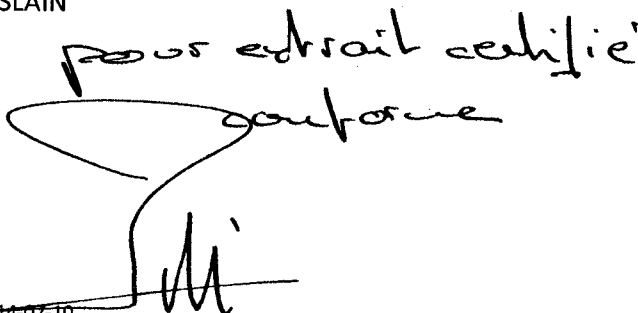 SLAIN
pour extrait certifié
conforme